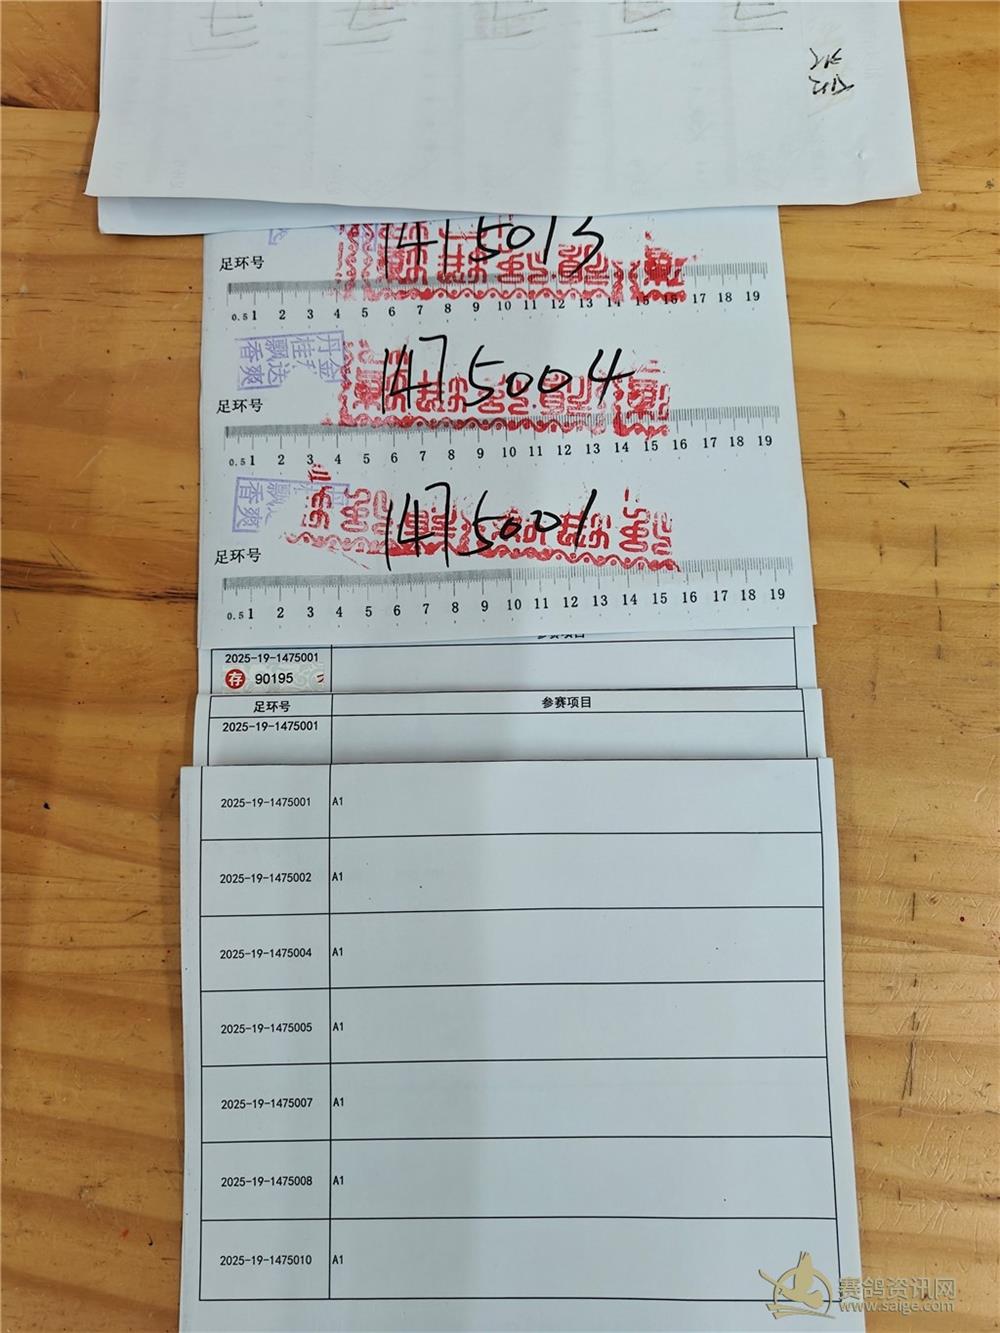 1475013
足环号
0.5 1 2 3 4 5 6 7 8 9 10 11 12 13 14 15 16 17 18 19
1475004
足环号
0.5 1 2 3 4 5 6 7 8 9 10 11 12 13 14 15 16 17 18 19
1475001
足环号
0.5 1 2 3 4 5 6 7 8 9 10 11 12 13 14 15 16 17 18 19
参赛项目
2025-19-1475001
存 90195
足环号 参赛项目
2025-19-1475001
2025-19-1475001 A1
2025-19-1475002 A1
2025-19-1475004 A1
2025-19-1475005 A1
2025-19-1475007 A1
2025-19-1475008 A1
2025-19-1475010 A1
赛鸽资讯网
www.saige.com